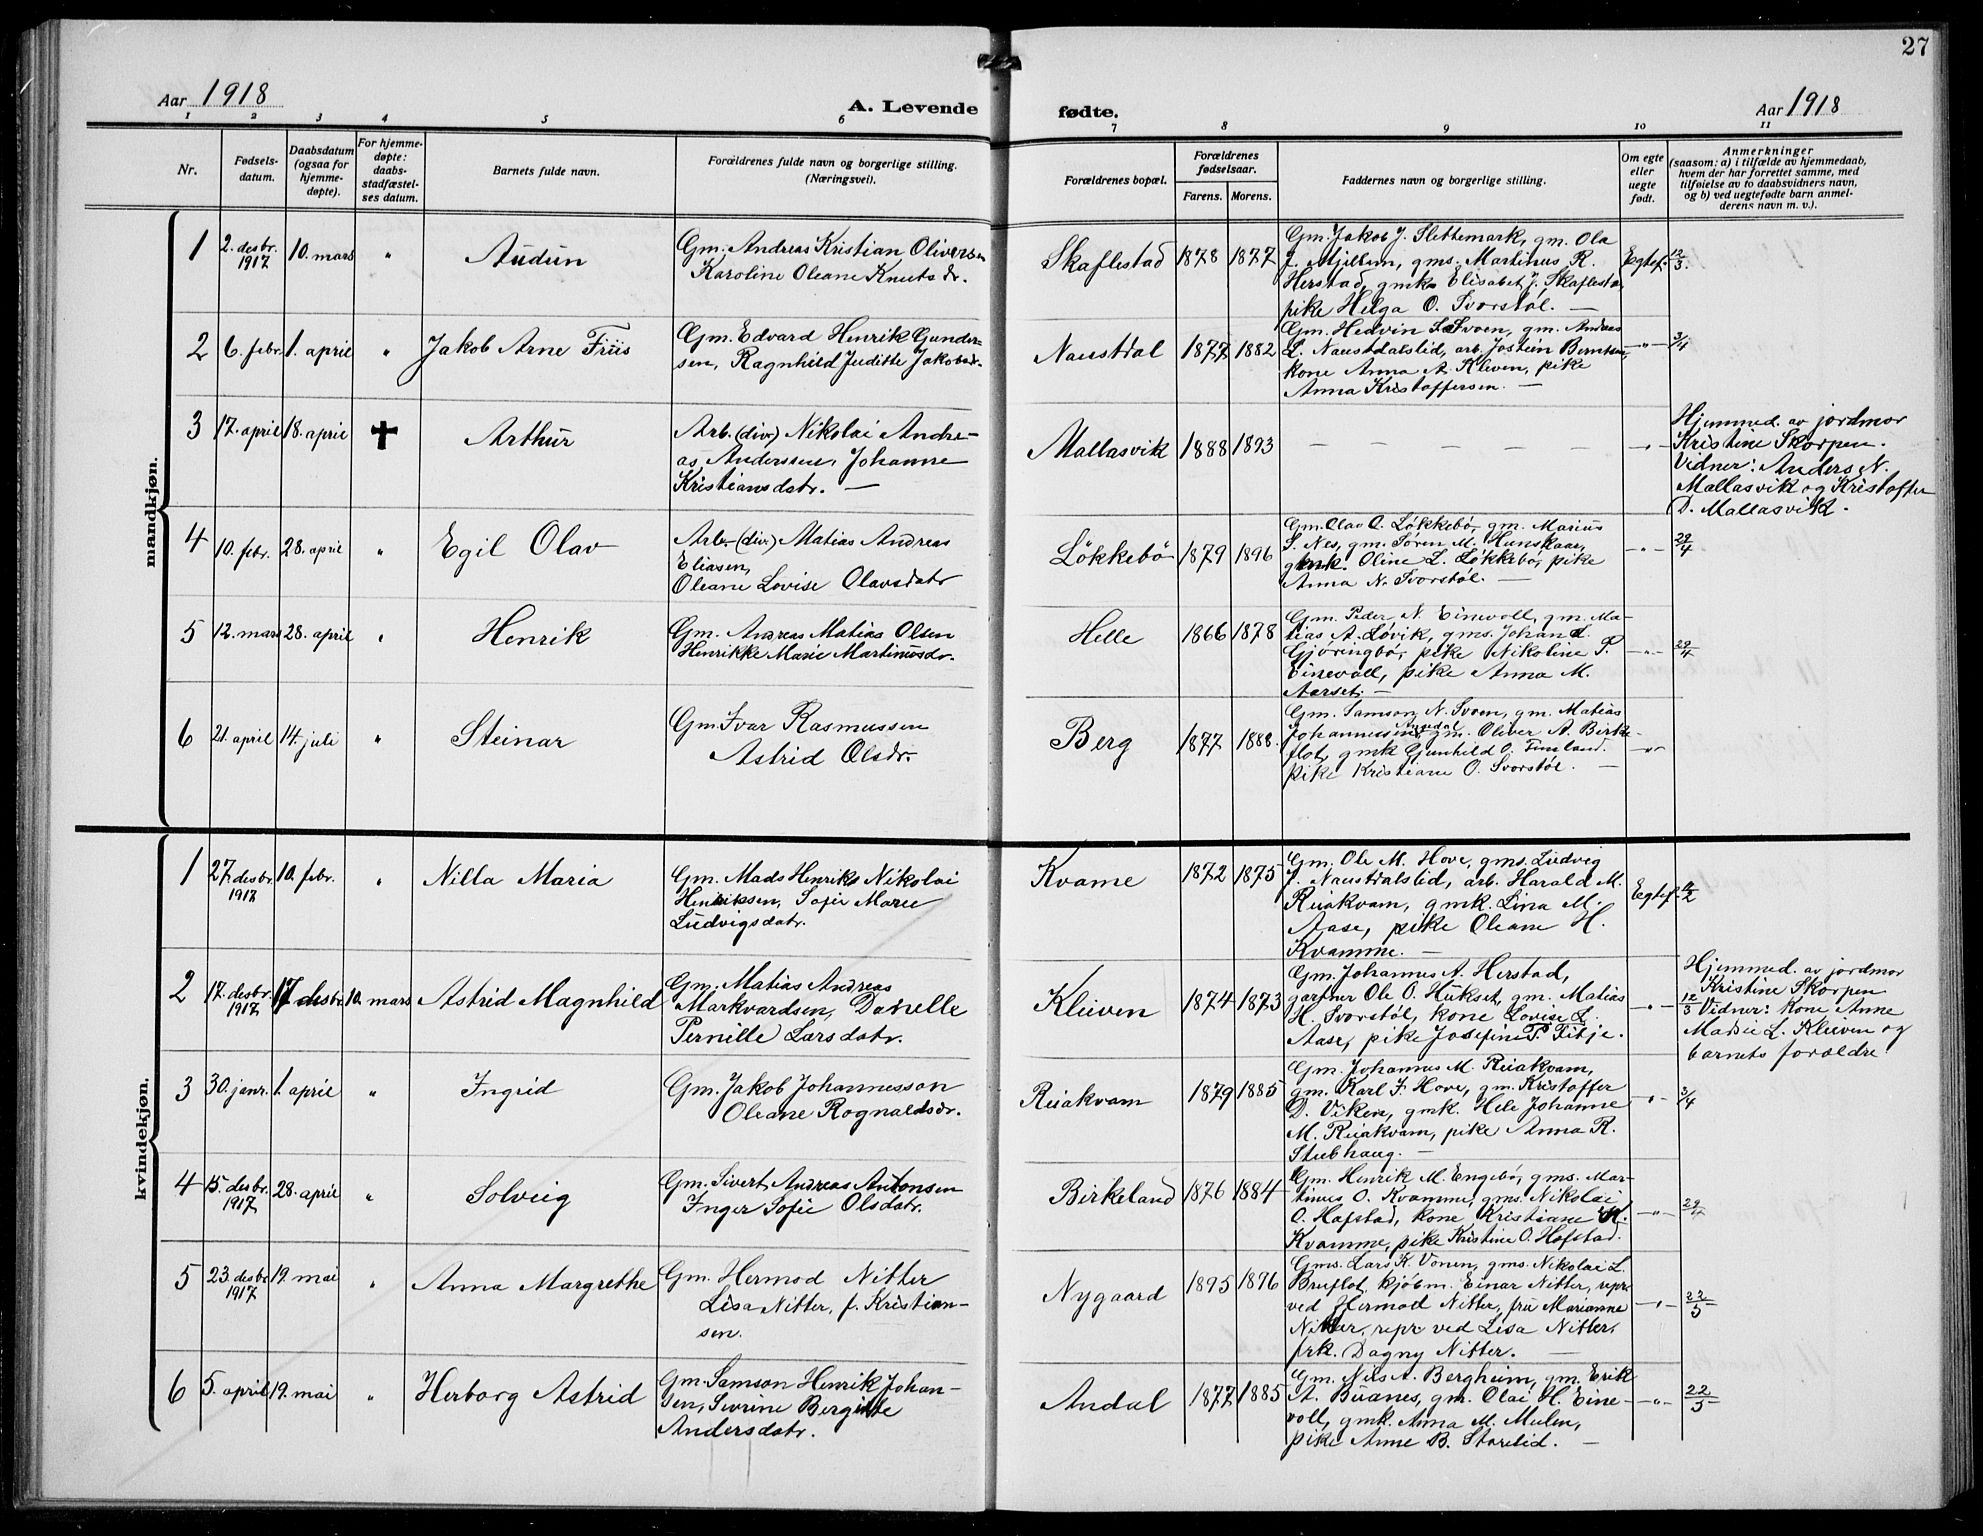 27
Aar 1918
A. Levende
fødte.
Aar 1918
1 2 3 4 5 6 7 8 9 10 11
Nr.
Fødsels-
datum.
Daabsdatum
(ogsaa for
hjemme-
døpte).
For hjemme-
døpte:
daabs-
stadfæstel-
ses datum.
Barnets fulde navn.
Forældrenes fulde navn og borgerlige stilling.
(Næringsvei).
Forældrenes bopæl.
Forældrenes
fødselsaar.
Farens. Morens.
Faddernes navn og borgerlige stilling.
Om egte
eller
uegte
født.
Anmerkninger
(saasom: a) i tilfælde av hjemmedaab,
hvem der har forrettet samme, med
tilføielse av to daabsvidners navn,
og b) ved uegtefødte barn anmel-
derens navn m. v.).
mandkjøn.
1
2. desbr.
1917
10. mars
"
Audun
Gm. Andreas Kristian Oliversen
Karoline Oleane Knutsdr.
Skaflestad
1878 1877
Gm. Jakob J. Slettemark, gm. Ola
J. Mjellem, gms. Martinus R.
Herstad, gmk. Elisabet J. Skaflestad
pike Helga O. Svorstøl. —
Egtef.
12/3.
2
6. febr.
1. april
"
Jakob Arne Friis
Gm. Edvard Henrik Gunder-
sen, Ragnhild Juditte Jakobsdr.
Naustdal
1877 1882
Gm. Hedvin S. Svoen, gm. Andreas
L. Naustdalslid, arb. Jostein Berntsen,
kone Anna A. Kleven, pike
Anna Kristoffersen. —
—"—
3/4
3
17. april
18. april
✝
Arthur
Arb. (div.) Nikolai Andre-
as Anderssen, Johanne
Kristiansdatr. —
Mallasvik
1888 1893
— — — — —
—"—
Hjemmed. av jordmor
Kristine Skorpen.
Vidner: Anders N.
Mallasvik og Kristoffer
D. Mallasvik.
4
10. febr.
28. april
"
Egil Olav
Arb. (div.) Matias Andreas
Eliasen,
Oleane Lovise Olavsdatr
Løkkebø
1879 1896
Gm. Olav O. Løkkebø, gm. Marius
S. Nes, gm. Søren M. Hunskaar,
gmk. Oline L. Løkkebø, pike
Anna N. Svorstøl. —
—"—
29/4
5
12. mars
28. april
"
Henrik
Gm. Andreas Matias Olsen
Henrikke Marie Martinusdr.
Helle
1866 1878
Gm. Peder N. Einevoll, gm. Ma-
tias A. Løvik, gms. Johan L.
Gjøringbø, pike Nikoline P.
Einevoll, pike Anna M.
Aarset. —
—"—
29/4
6
21. april
14. juli
"
Steinar
Gm. Ivar Rasmussen
Astrid Olsdr.
Berg
1877 1888.
Gm. Samson N. Svoen, gm. Matias
Johannessen Aasedal, gm. Oliver A. Birke-
flot, gmk Gunhild O. Fimland.
pike Kristiane O. Svorstøl. —
—"—
kvindekjøn.
1
27. desbr.
1917
10. febr.
"
Nilla Maria
Gm. Mads Henriks Nikolai
Henriksen, Sofie Marie
Ludvigsdatr.
Kvame
1872 1875
Gm. Ole M. Hove, gms. Ludvig
J. Naustdalslid, arb. Harald M.
Ruakvam, gmk. Lina M.
Aase, pike Oleane H.
Kvamme. —
Egtef.
2
17. desbr.
1917
17 desbr
10. mars
Astrid Magnhild
Gm. Matias Andreas
Markvardsen, Danelle
Pernille Larsdatr.
Kleiven
1874 1873
Gm. Johannes A. Herstad,
gartner Ole O. Hukset, gm. Matias
H. Svorstøl, kone Lovise L.
Aase, pike Josefine P. Fitje.
—"—
12/3
Hjemmed. av jordmor
Kristine Skorpen
Vidner: Kone Anne
Marie L. Kleiven og
barnets forældre.
3
30. janr.
1. april
"
Ingrid
Gm. Jakob Johannesson
Oleane Rognaldsdr.
Ruakvam
1879 1885
Gm. Johannes M. Ruakvam,
gm. Karl J. Hove, gm. Kristoffer
D. Viken, gmk. Hele Johanne
M. Ruakvam, pike Anna R.
Stubhaug. —
—"—
3/4
4
15. desbr.
1917
28. april
"
Solveig
Gm. Sivert Andreas Antonsen
Inger Sofie Olsdatr.
Birkeland
1876 1884
Gm. Henrik M. Engebø, gms. Mar-
tinus O. Kvamme, gms. Nikolai
O. Hafstad, kone Kristiane K.
Kvamme, pike Kristine O. Hafstad.
—"—
29/4
5
23. desbr
1917
19. mai
"
Anna Margrethe
Gm. Hermod Nitter
Lisa Nitter, f. Kristian-
sen.
Nygaard
1895 1896
Gms. Lars K. Vonen, gms. Nikolai L.
Bruflot, kjøbm. Einar Nitter, repr
ved Hermod Nitter, fru Marianne
Nitter, repr ved Lisa Nitter,
frk. Dagny Nitter. —
—"—
22/5
6
5. april
19. mai
"
Herborg Astrid
Gm. Samson Henrik Johan-
sen, Sivrine Bergitte
Andersdatr.
Andal
1877 1885
Gm. Nils A. Bergheim, gm. Erik
A. Buanes, gm. Olai H. Eine-
voll, gmk. Anna M. Mulen,
pike Anne B. Storelid. —
—"—
22/5